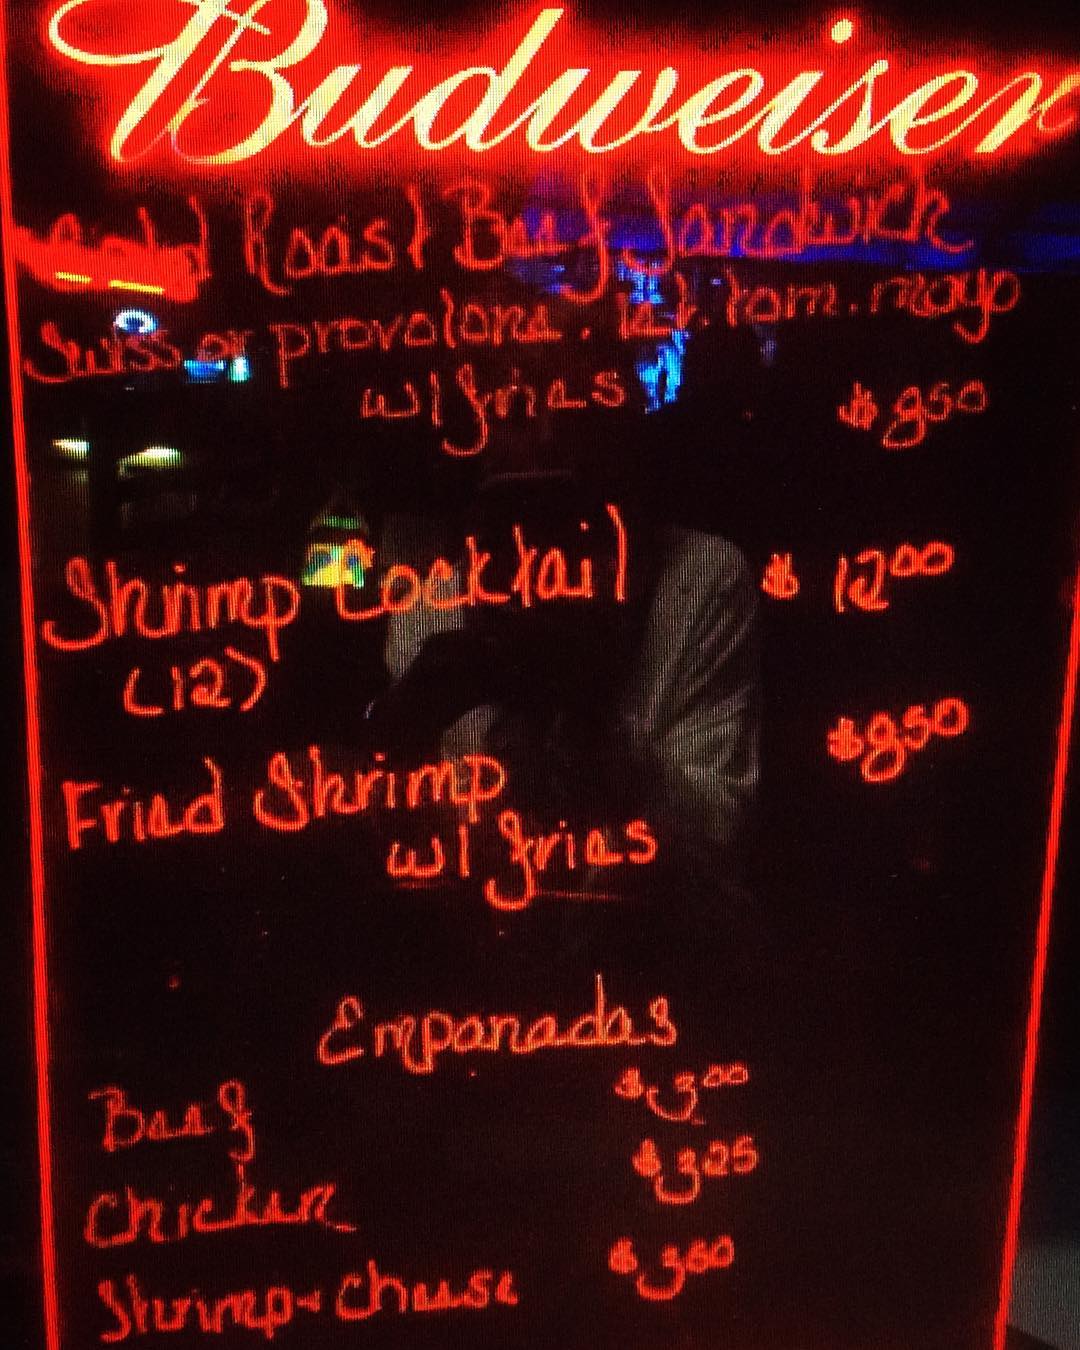 Budweiser
Roast Beef Sandwich
Swiss or provolone. let. tom. mayo
w/ fries $850
Shrimp Cocktail $ 1200
(12)
$850
Fried Shrimp
w/ fries
Empanadas
Beef $300
Chicken $325
Shrimp + cheese $350